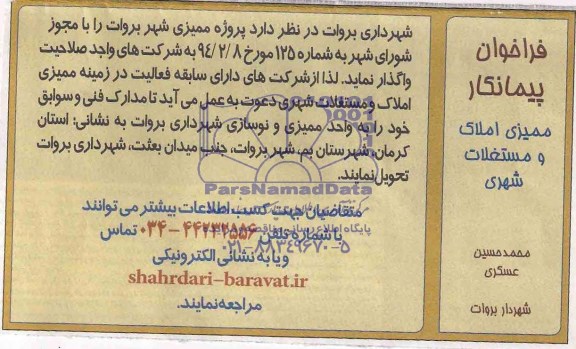 فراخوان
پیمانکار
ممیزی املاک
و مستغلات
شهری
محمدحسین
عسکری
شهردار بروات
شهرداری بروات در نظر دارد پروژه ممیزی شهر بروات را با مجوز
شورای شهر به شماره ۱۲۵ مورخ ۹۴/۲/۸ به شرکت های واجد صلاحیت
واگذار نماید. لذا از شرکت های دارای سابقه فعالیت در زمینه ممیزی
املاک و مستغلات شهری دعوت به عمل می آید تا مدارک فنی و سوابق
خود را به واحد ممیزی و نوسازی شهرداری بروات به نشانی: استان
کرمان، شهرستان بم، شهر بروات، جنب میدان بعثت، شهرداری بروات
تحویل نمایند.
ParsNamadData
متقاضیان جهت کسب اطلاعات بیشتر می توانند
با شماره تلفن ۴۴۲۳۲۵۵۶-۰۳۴ تماس
۰۲۱-۸۸۳۴۹۶۷۰-۵
و یا به نشانی الکترونیکی
shahrdari-baravat.ir
مراجعه نمایند.